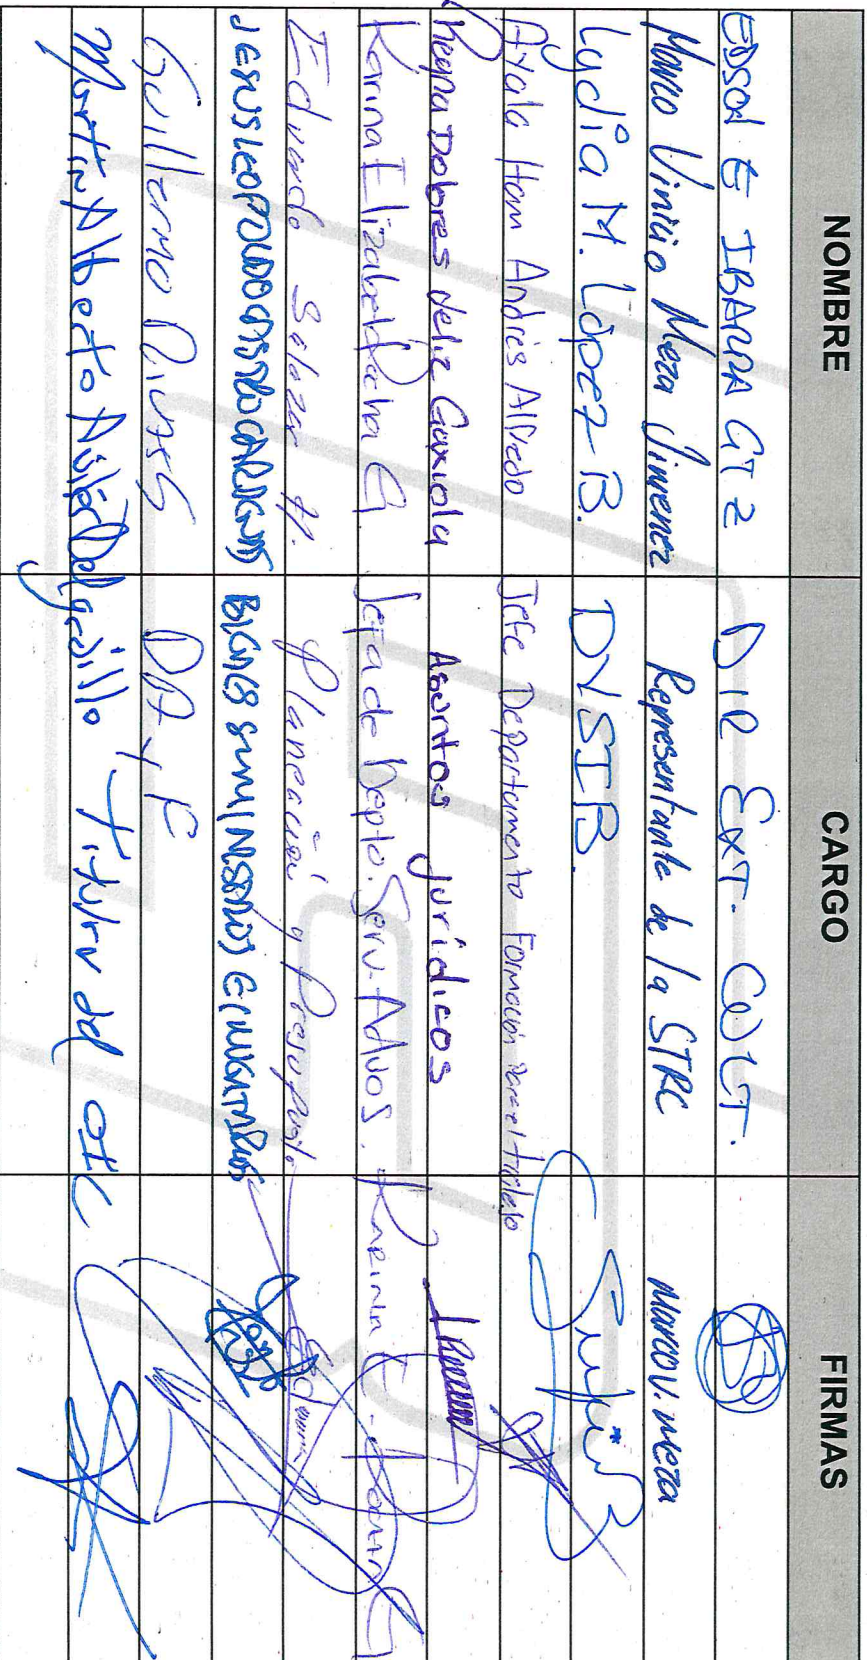 NOMBRE CARGO FIRMAS
EDSON E IBARRA GTZ DIR EXT. CULT.
Marco Vinicio Meza Jimenez Representante de la STRC Marco V. Meza
Lydia M. López B. DVSIB.
Ayala Ham Andrés Alfredo Jefe Departamento Formación para el trabajo
Reyna Dolores Veliz Gaxiola Asuntos jurídicos
Karina Elizabeth G Jefa de Depto. Serv. Advos. Karina E.
Eduardo Salazar H. Planeación y Presupuesto
JESUS LEOPOLDO CASTRO BIENES SUMINISTROS E
Guillermo DA y F
Martin Alberto Avilés Delgadillo Titular del OIC